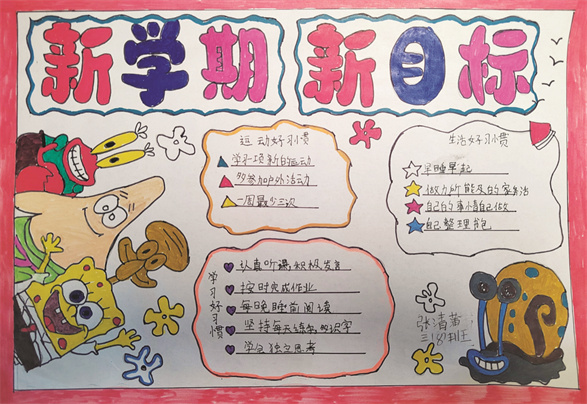 新学期 新目标
运动好习惯
学习一项新的运动
多参加户外活动
一周最少三次
生活好习惯
早睡早起
做力所能及的家务活
自己的事情自己做
自己整理书包
学习好习惯
认真听课,积极发言
按时完成作业
每晚睡前阅读
坚持每天练字
学会独立思考
张清
三(8)班